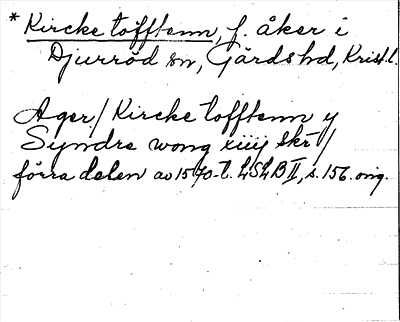 * Kircke tofftenn, f. åker i
Djurröd sn, Gärds hd, Krist. l.
Ager / Kircke tofftenn y
Syndre wong xiiij skr /
förra delen av 1570-t. LSLB II, s. 156. orig.